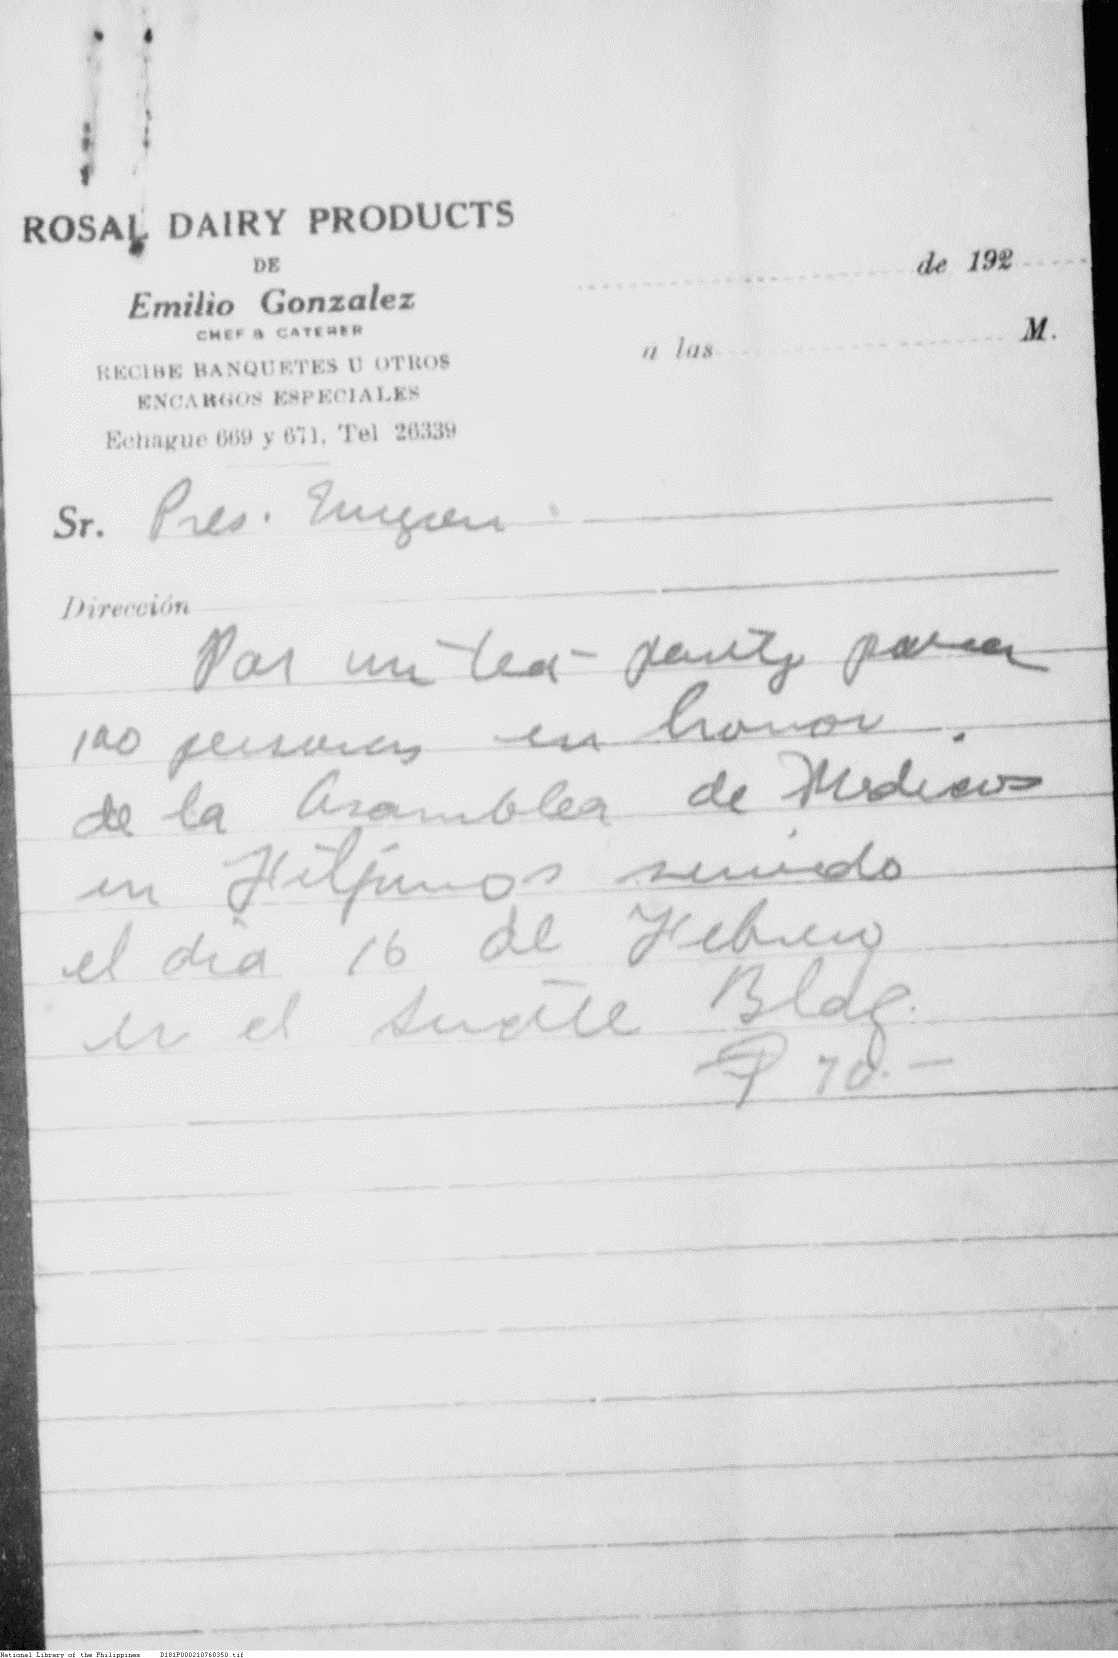 ROSAL DAIRY PRODUCTS
DE
Emilio Gonzalez
CHEF & CATERER
RECIBE BANQUETES U OTROS
ENCARGOS ESPECIALES
Echague 669 y 671, Tel 26339
de 192
a las M.
Sr. Pres.
Dirección
Por un tea-party para
100 personas en honor
de la Asamblea de Medicos
en Filipinos servido
el dia 16 de Febrero
en el Bldg.
₱ 70.—
National Library of the Philippines D181P000210760350.tif